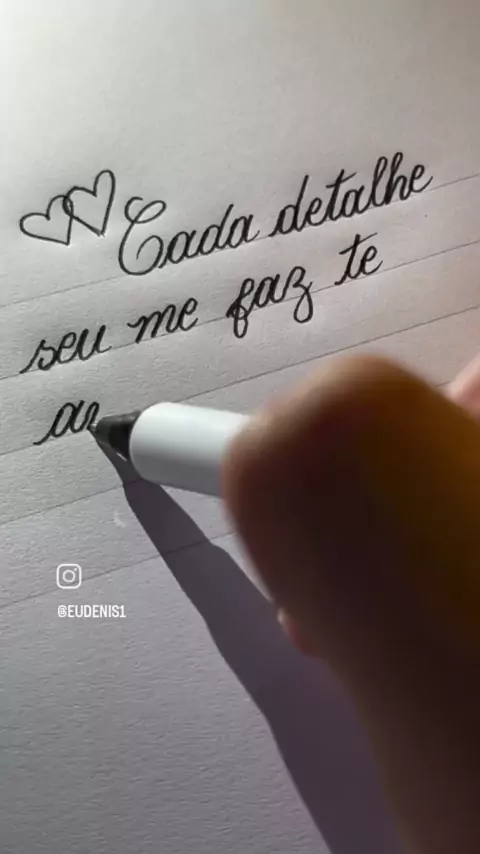 Cada detalhe
seu me faz te
@EUDENIS1